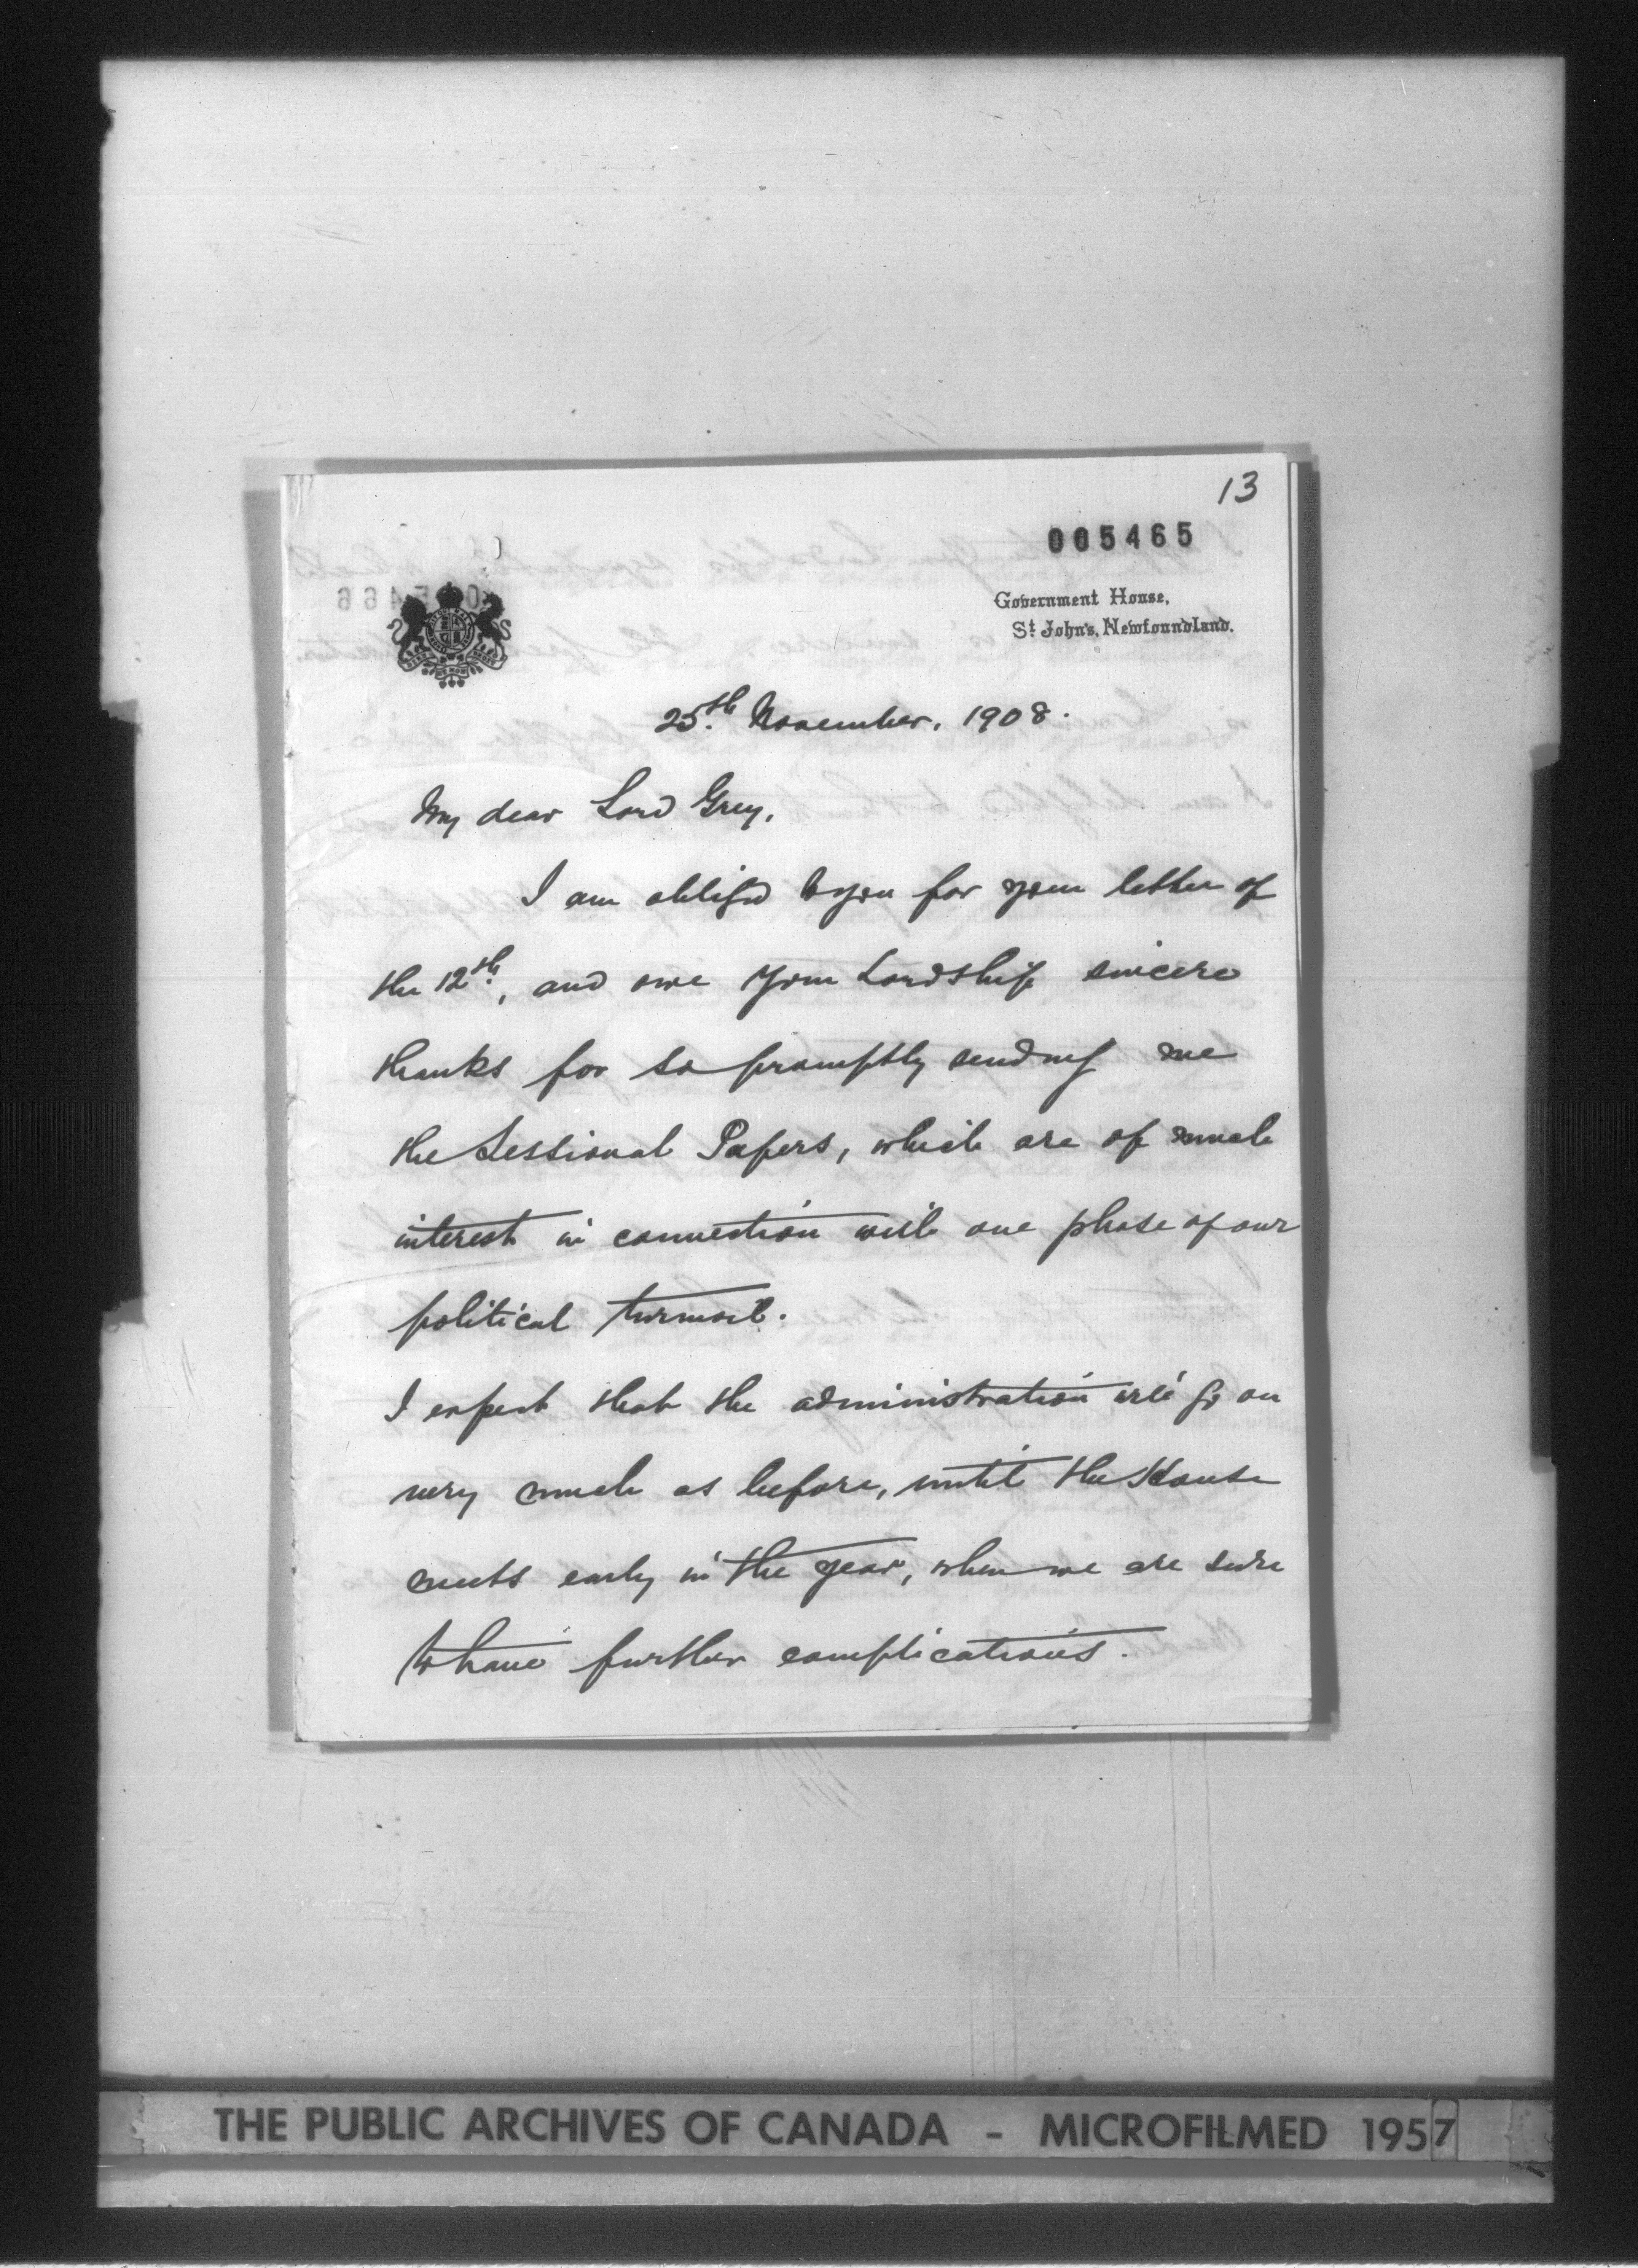 13
005465
Government House,
St. John's, Newfoundland.
25th November, 1908.
My dear Lord Grey,
I am obliged to you for your letter of
the 12th, and owe your Lordship sincere
thanks for so promptly sending me
the Sessional Papers, which are of much
interest in connection with one phase of our
political turmoil.
I expect that the administration will go on
very much as before, until the House
meets early in the year, when we are sure
to have further complications.
THE PUBLIC ARCHIVES OF CANADA - MICROFILMED 1957